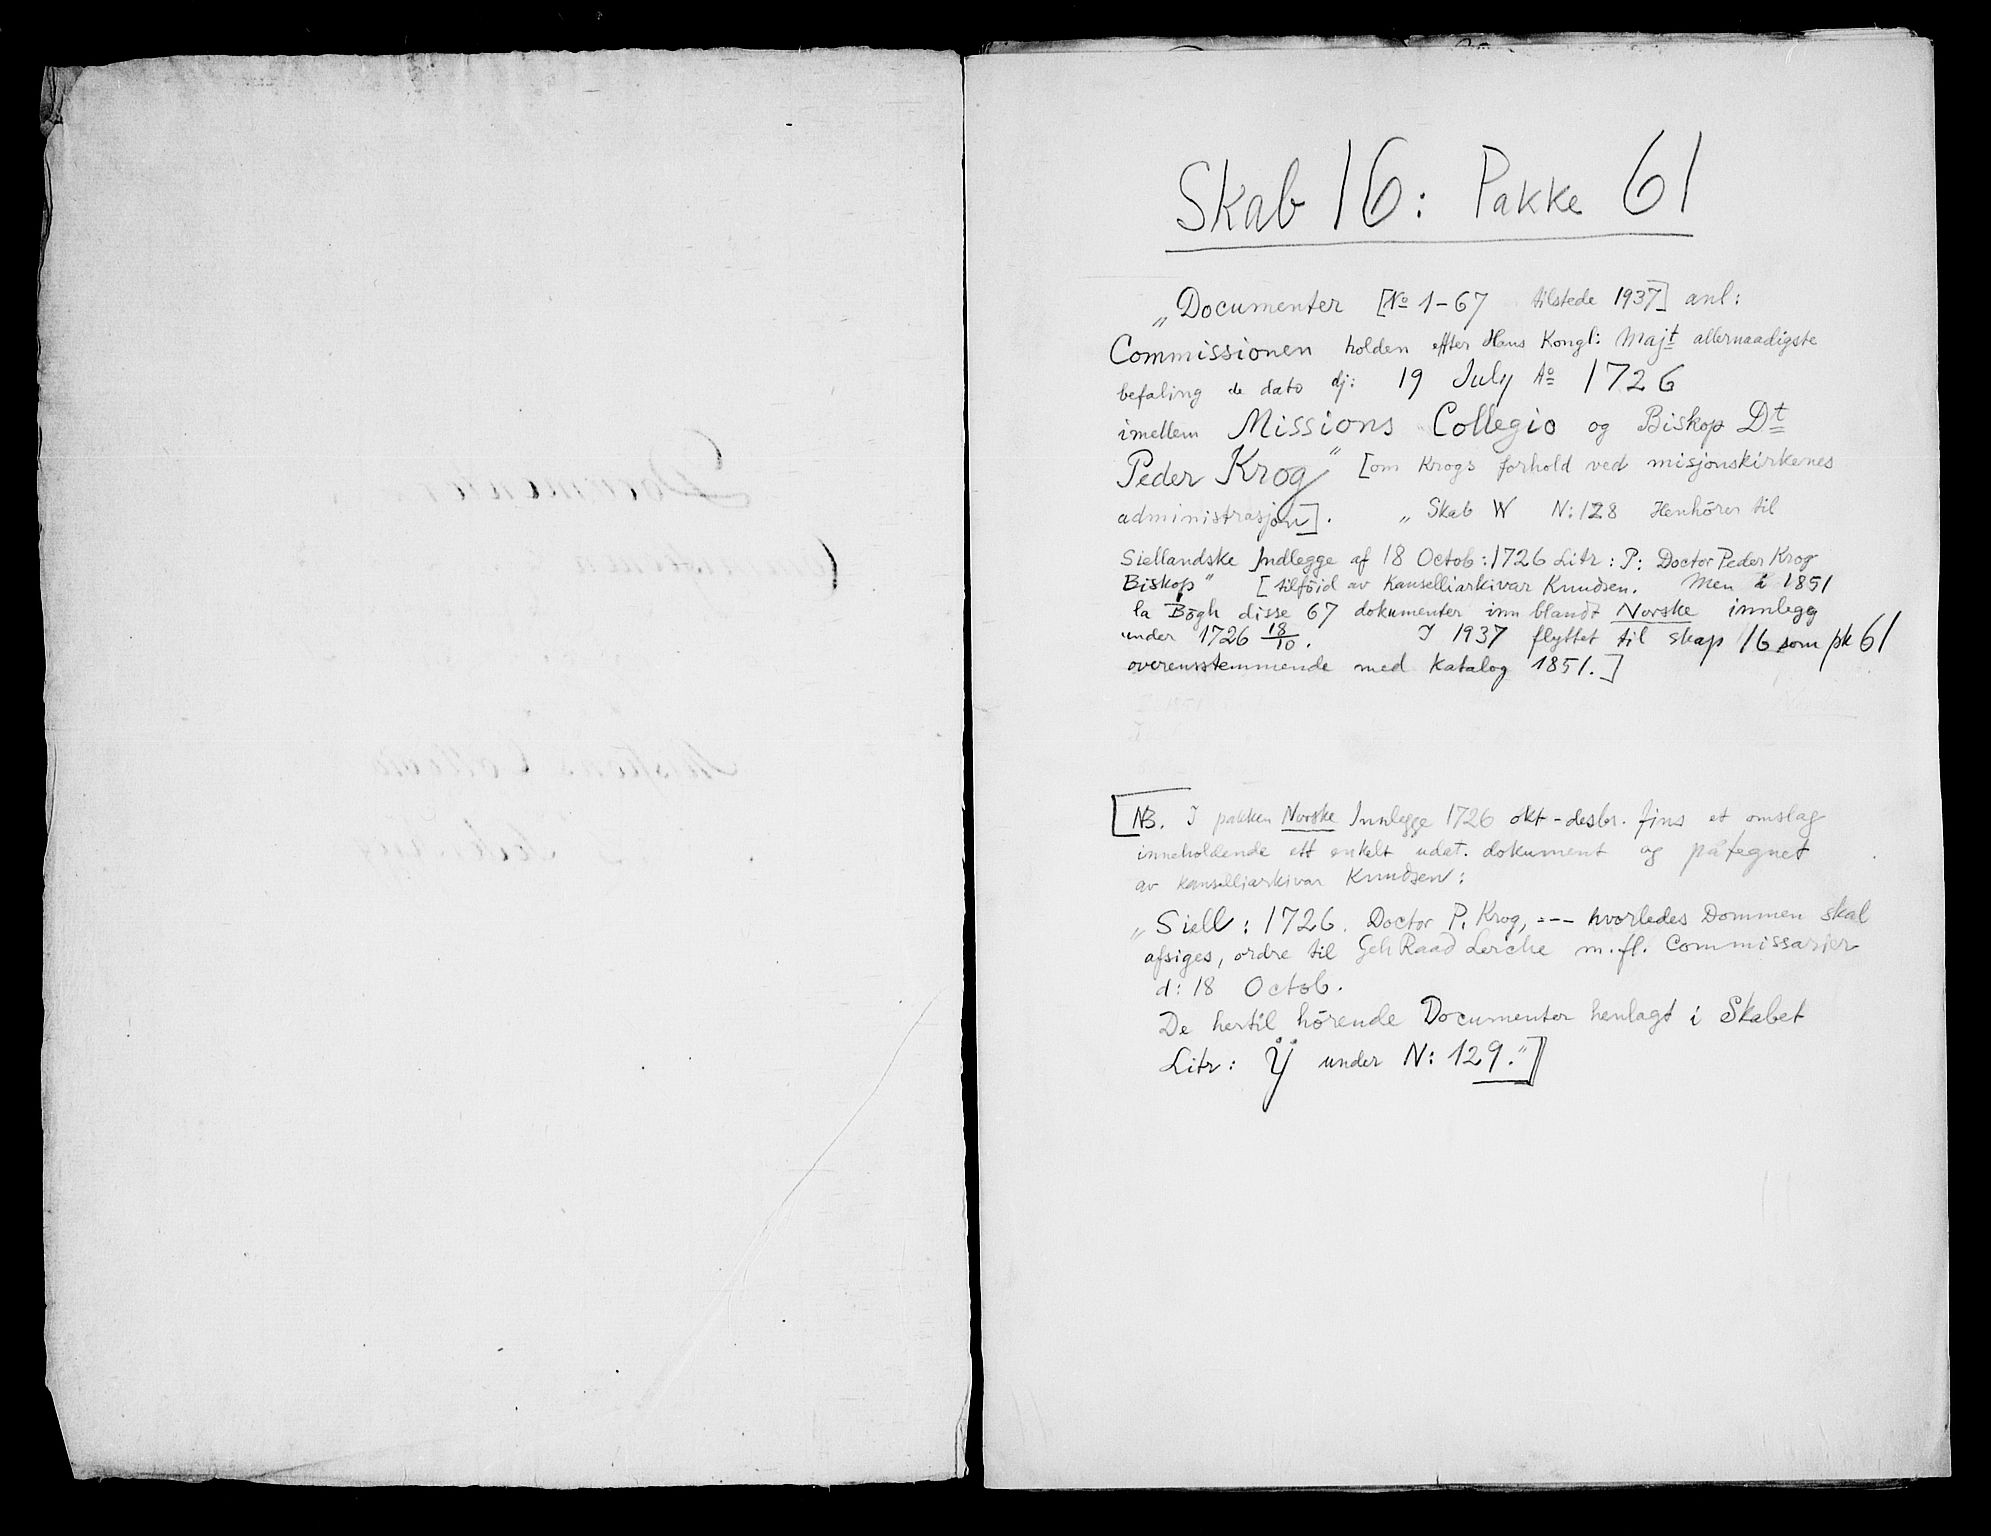 Skab 16: Pakke 61
„Documenter [No 1-67 tilstede 1937] anl:
Commissionen holden efter Hans Kongl: Majt allernaadigste
befaling de dato dj: 19 July Ao 1726
imellem Missions Collegio og Biskop Dt
Peder Krog" [om Krogs forhold ved misjonskirkenes
administrasjon]. „Skab W N: 128 Henhörer til
Siellandske Indlegge af 18 Octob: 1726 Litr: P: Doctor Peder Krog
Biskop" [tilföid av Kanselliarkivar Knudsen. Men i 1851
la Bögh disse 67 dokumenter inn blandt Norske innlegg
under 1726 18/10. I 1937 flyttet til skap 16 som pk 61
overensstemmende med Katalog 1851.]
[NB. I pakken Norske Innlegge 1726 okt-desbr. fins et omslag
inneholdende ett enkelt udat. dokument og påtegnet
av kanselliarkivar Knudsen:
„Siell: 1726. Doctor P. Krog, --- hvorledes Dommen skal
afsiges, ordre til Geh Raad Lerche m.fl. Commissarier
d: 18 Octob.
De hertil hörende Documenter henlagt i Skabet
Litr: Ÿ under N: 129."]